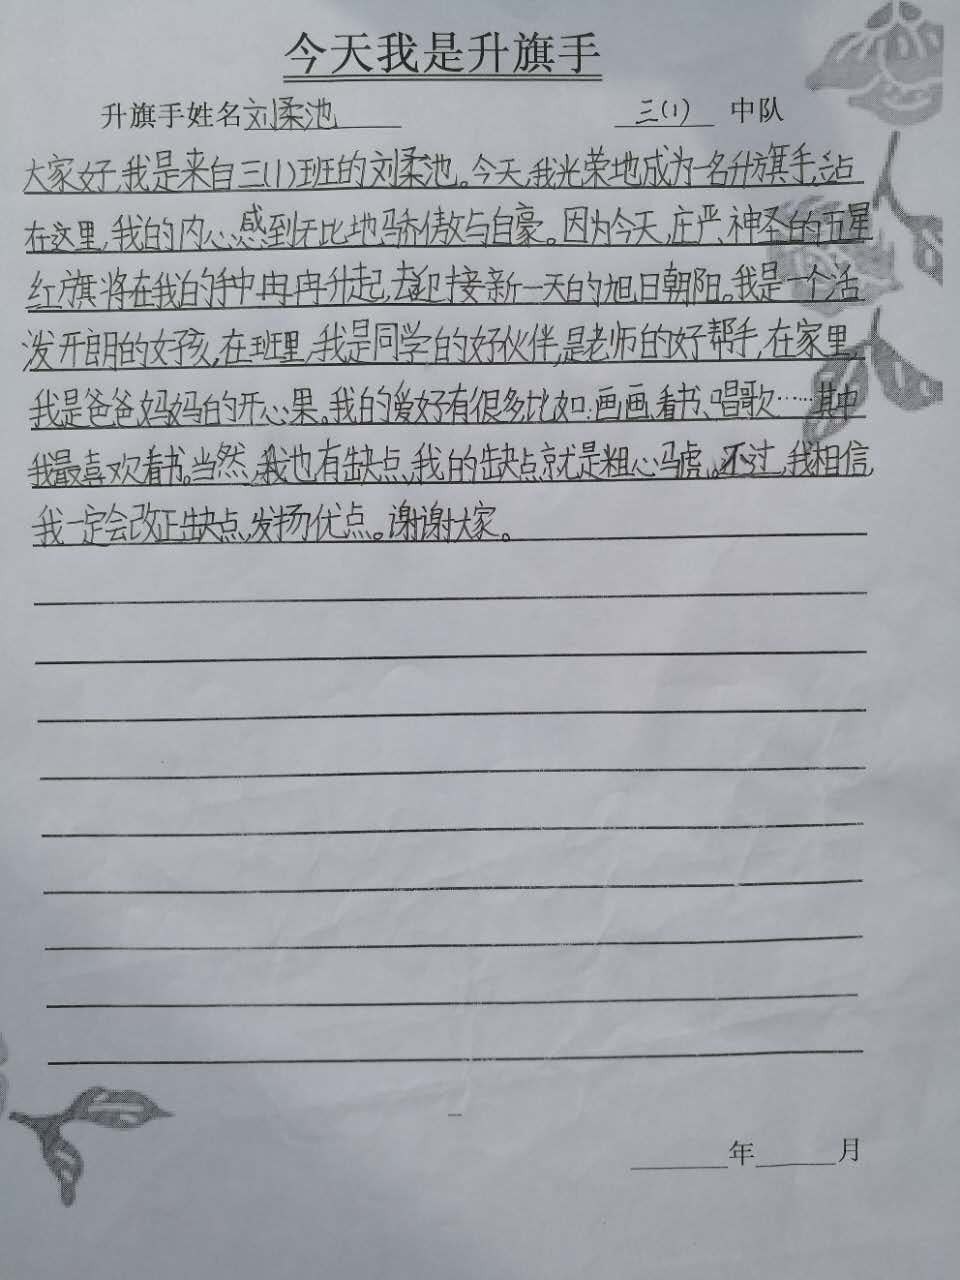 今天我是升旗手
升旗手姓名刘柔池 三(1) 中队
大家好,我是来自三(1)班的刘柔池。今天,我光荣地成为一名升旗手,站
在这里,我的内心感到无比地骄傲与自豪。因为今天,庄严、神圣的五星
红旗将在我的手中冉冉升起,去迎接新一天的旭日朝阳。我是一个活
泼开朗的女孩,在班里,我是同学的好伙伴,是老师的好帮手,在家里,
我是爸爸妈妈的开心果。我的爱好有很多比如:画画、看书、唱歌……其中
我最喜欢看书。当然,我也有缺点,我的缺点就是粗心马虎。不过,我相信,
我一定会改正缺点,发扬优点。谢谢大家。
年 月